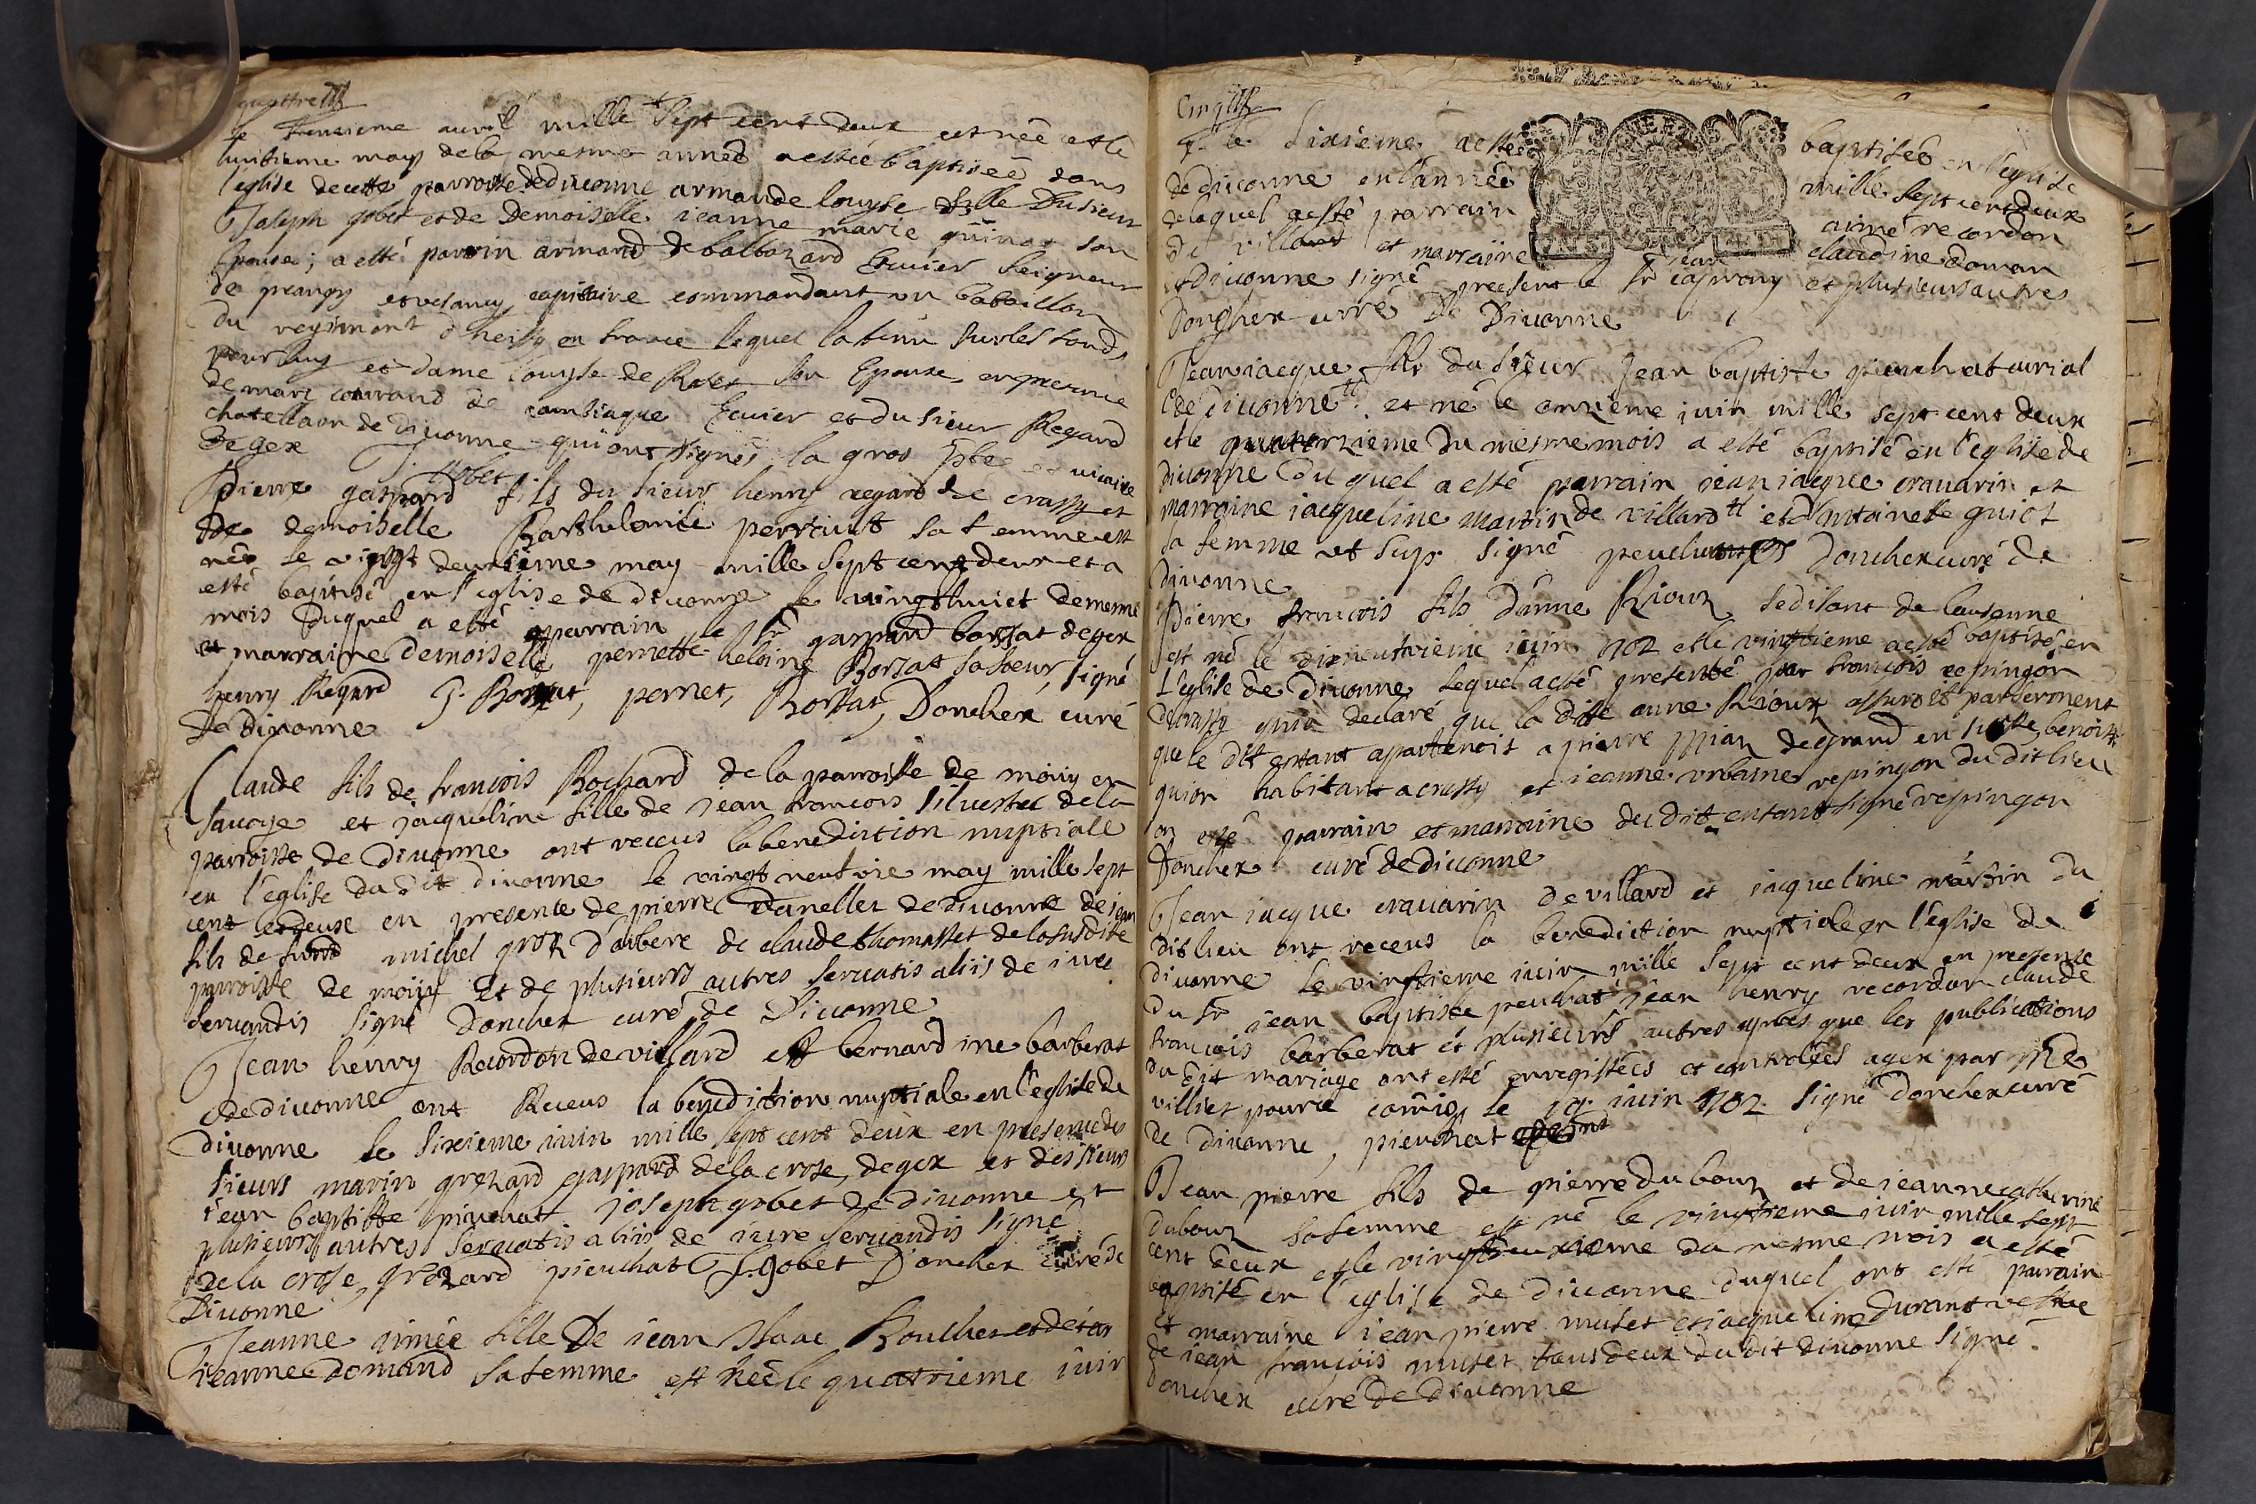 quattre
le treuzieme auvril mille sept cent deux est née et le
huitieme may de la mesme année a estée baptiséé dans
l'eglise de cette parroisse de divonne armande louyse fille du sieur
Joseph gobet et de Demoiselle ieanne marie guinat son
Epouse; a esté parrin armand de balthazard Ecuier seigneur
de prangy et vesancy capitaine commandant un bataillon
du regiment d'hessy en france lequel la tenu sur les fonds
pour luy et dame louyse de son Epouse, en presence
de marc conrand de Ecuier et du sieur Regard
chatellaon de divonne qui ont signés la gros pbre et vicaire
de gex J. gobet
Pierre gaspard fils du sieur henry regard de crassy et
de demoiselle Barthelemie perrault sa femme est
née le vingt deuxieme may mille sept cent deux et a
esté baptisé en l'eglise de divonne le vingthuict de mesme
mois Duquel a esté parrain le sr gaspard borssat de gex
et marraine demoiselle pernette heleine Borsat sa soeur, signé
henry Regard J. Borsat, pernet, Borssat, Donchex curé
De divonne
Claude fils de françois Bochard de la parroisse de moüy en
savoye et jacqueline fille de jean françois silvestre de la
parroisse de divonne ont receus la benediction nuptialle
en l'eglise du dit divonne le vingt neufvie may mille sept
cent et deux en presence de pierre Vanellet de divonne de jean
fils de michel groz d'arbere de claude thomasset de la susdite
parroisse de moüy et de plusieurs autres servatis aliis de iure
servandis signé Donchex curé de Divonne
Jean henry Recordon de villard et bernardine barberat
de divonne ont Receus la benediction nuptiale en l'eglise de
divonne le sixieme iuin mille sept cent deux en presence des
sieurs marin grezard gaspard de la crose, de gex et des sieurs
iean baptiste pieuchat joseph gobet de divonne et
plusieurs autres servatis aliis de iure servandis signé
de la crose, grezard pieuchat J. gobet Donchex curé de
Divonne
Jeanne aimée fille De iean Isaac Bouchet et de
ieanne domand sa femme est néé le quatrieme iuin
Cinq
et le sixieme a esté baptiséé en l'eglise
de divonne en l'année mille sept cent deux
delaquel a esté parrain aimé recordon
de villard et marraine claudine doman
de divonne signé present le sr jean caprony et plusieurs autres
Donchex curé De Divonne
Jean iacque fils du sieur Jean baptiste pieuchat curial
de divonne et né le onzieme iuin mille sept cent deux
et le quatorzieme du mesme mois a esté baptisé en l'eglise de
divonne Duquel a esté parrain iean iacque cravarin et
marraine iacqueline martin de villard et d'Antoinette guiot
sa femme et signé peuchat Donchex curé de
divonne
Pierre françois fils d'anne Rioux se disant de lausanne
est né le dixneufvieme iuin 1702 et le vingtieme a esté baptisé en
L'eglise de Divonne Lequel a esté presenté par françois repingon
de crassy qui a declaré que la ditte anne Rioux assuroit par serment
que le dit enfant apartenoit a pierre de grand en suisse, benoist
guion habitant a crassy et ieanne urbaine repingon du dit lieu
on esté parrain et marraine du dit enfant signé repingon
Donchex curé de divonne
Jean iacque cravarin de villard et iacqueline martin du
dit lieu ont receus la benediction nuptiale en l'eglise de
divonne le vingtieme iuin mille sept cent deux en presence
du sr iean baptiste peuchat iean henry recordon claude
françois barberat et plusieurs autres apres que les publications
du dit mariage ont esté enregistrées et controlées a gex par Me
villiet pour le commis, le 19 iuin 1702 signé donchex curé
de divonne, pieuchat
Jean pierre fils de pierre dubouz et de ieanne catherine
dubouz sa femme est né le vingtieme iuin mille sept
cent deux et le vingtdeuxieme du mesme mois a esté
baptisé en l'eglise de divonne duquel ont esté parrain
et marraine iean pierre muset et iacqueline durant vefve
de iean françois muset tous deux du dit divonne signé
donchex curé de divonne